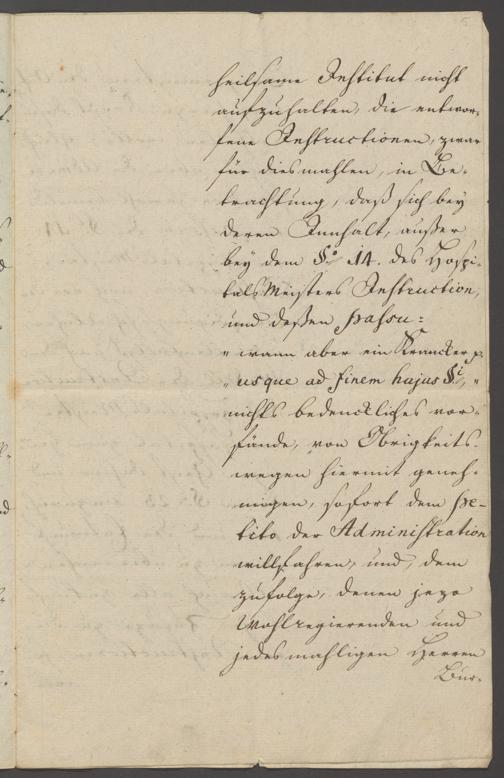 heilsame Institut nicht
aufzuhalten, die entwor-
fene Instructionen, zwar
für diesmahlen, in Be-
trachtung, daß sich bey
deren Innhalt, außer
bey dem §o 14. des Hospi-
talsMeisters Instruction,
und deßen passu:
" wann aber ein Krancker p.
" usque ad finem hujus §i, "
nichts bedenckliches vor-
fünde, von Obrigkeits-
wegen hiermit geneh-
migen, sofort dem pe-
tito der Administration
willfahren, und, dem
zufolge, denen jezo
Wohlregierenden und
jedesmahligen Herren
Bur-